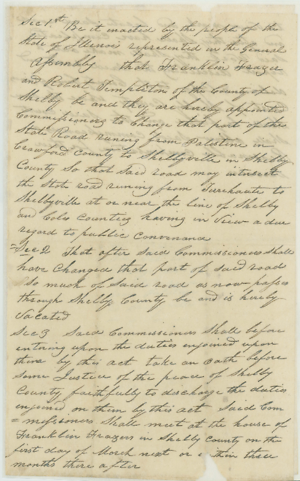 Sec 1st Be it enacted by the people of the
State of Illinois represented in the General
Assembly that Franklin Frazer
and Robert Templeton of the County of
Shelby be and they are hereby appointed
Commissioners to Change that part of the
State Road runing from Palestine in
Crawford County to Shelbyville in Shelby
County So that Said road may intersect
the State road runing from Terrehaute to
Shelbyville at or near the line of Shelby
and Cols Counties having in View a due
regard to public Convenance
Sec 2 That after Said Commissioners Shall
have Changed that part of said road
So much of Said road as now passes
through Shelby County be and is hereby
Vacated
Sec 3 Said Commissioners Shall before
entering upon the duties enjoined upon
them by this act take an oath before
some Justice of the peace of Shelby
County faithfully to discharge the duties
enjoined on them by this act Said Com
missioners Shall meet at the house of
Franklin Frazers in Shelby County on the
first day of March next or within three
months there after